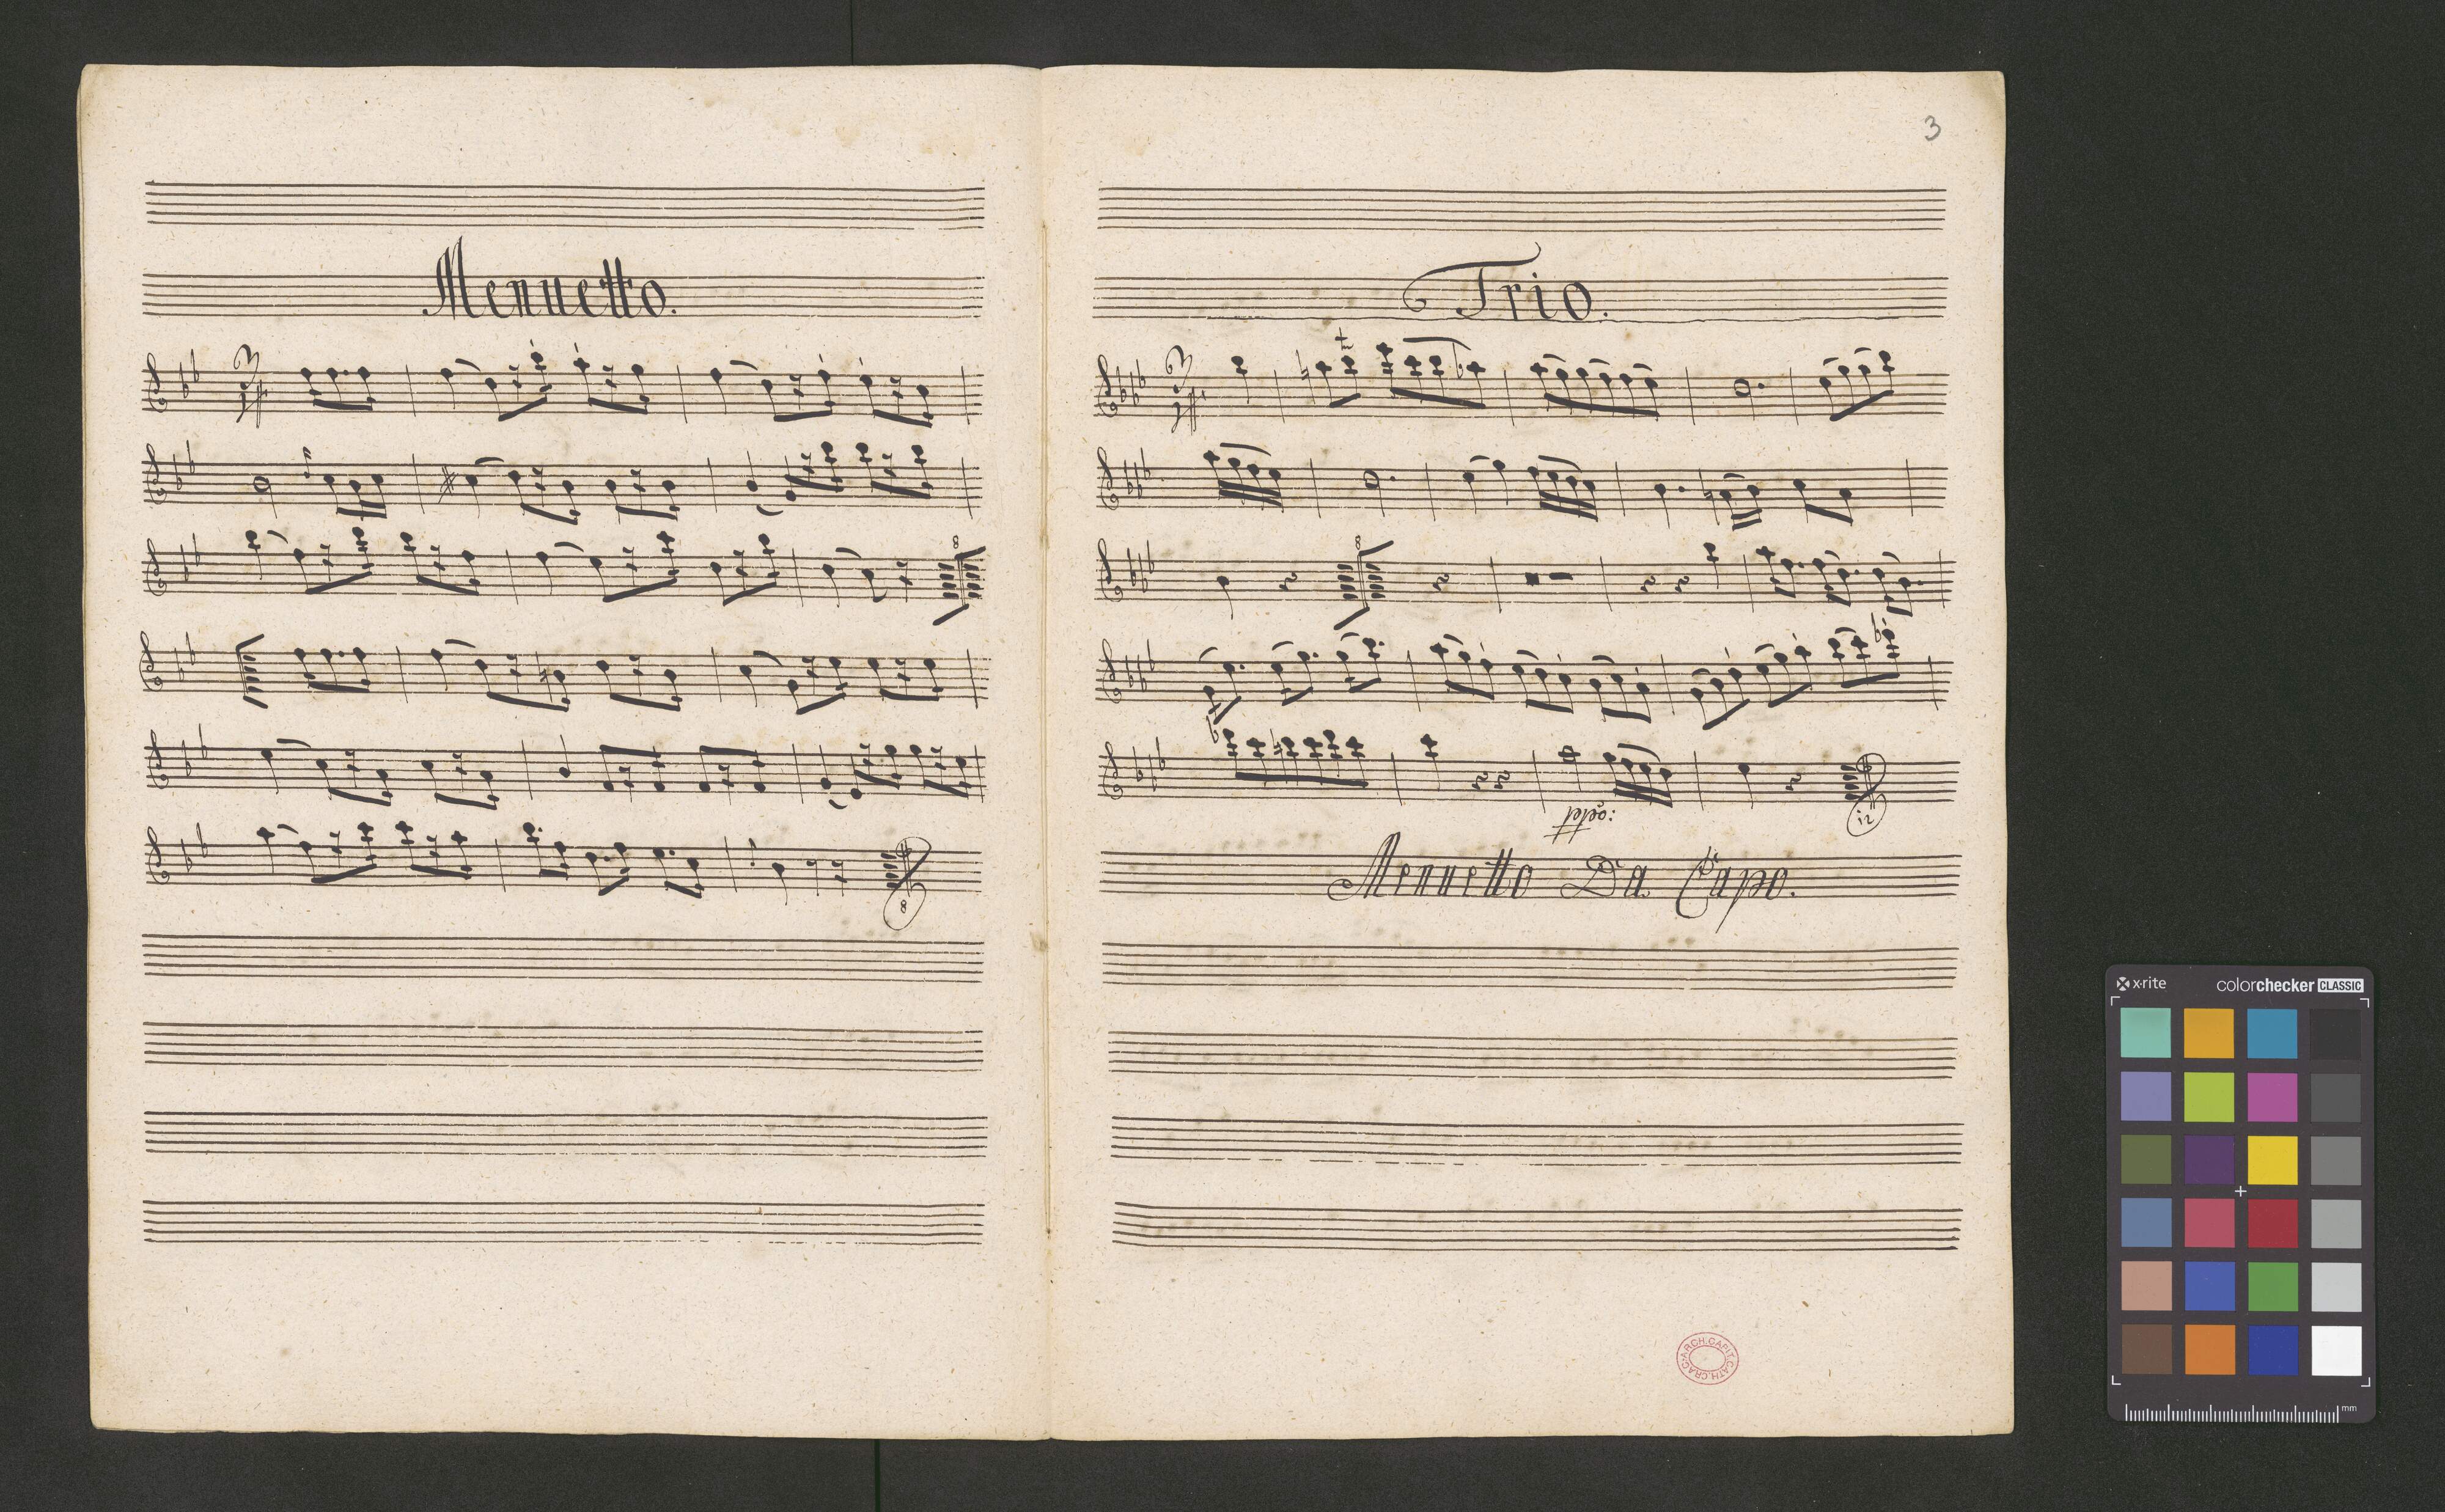 Menuetto.
8
8
3
Trio.
8
12
Menuetto Da Capo.
ARCH. CAPIT. CATH. CRAC.
x·rite colorchecker CLASSIC
mm